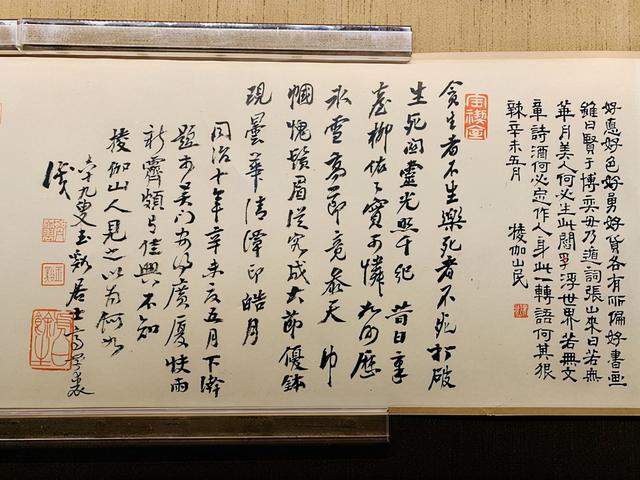 好惠好色好勇好貨各有所偏好書画
雖曰賢于博弈毋乃遁詞張山來曰若無
華月美人何必生此閻浮世界若無文
章詩酒何必定作人身此一轉語何其狠
辣辛未五月 棱伽山民
貪生者不生樂死者不死打破
生死關靈光照千祀 昔日章
臺柳依〻實可憐 九的歷
冰雪高節竟無天 巾
幗愧鬚眉從容成大節優鉢
現曇華清潭印皓月
同治十年辛未夏五月下澣
題於吳門安得廣廈快雨
新霽頗有佳興不知
棱伽山人見之以為何如
六十九叟玉谿居士